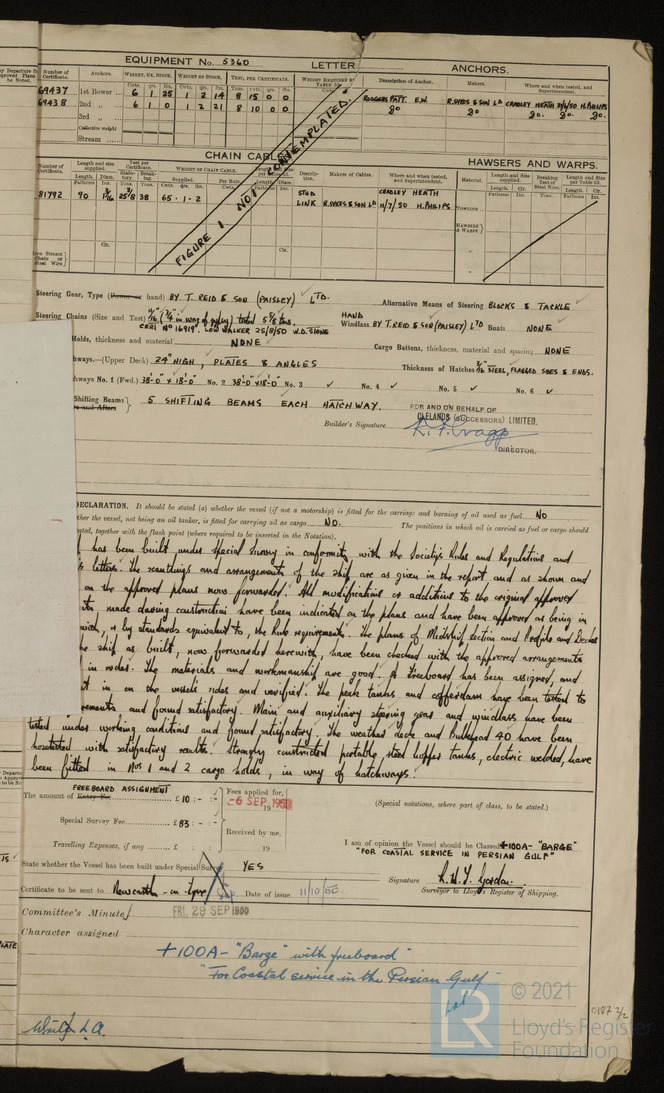 EQUIPMENT No. 5360 LETTER ANCHORS.
Number of Certificate. Anchors. WEIGHT, EX. STOCK. WEIGHT OF STOCK. TEST, PER CERTIFICATE. WEIGHT REQUIRED BY Description of Anchor. Makers. Where and when tested, and Superintendent.
69437 1st Bower 6 1 25 1 2 14 8 15 0 0 RODGERS PATT. E.W. R. SYKES & SON LD CRADLEY HEATH 2/6/50 H. PHILIPS
69438 2nd " 6 1 0 1 2 21 8 10 0 0 DO DO DO. DO. DO.
3rd "
Collective weight
Stream
FIGURE 1 NOT CONTEMPLATED.
CHAIN CABLES HAWSERS AND WARPS.
Number of Certificate. Length and size supplied. Test per Certificate. WEIGHT OF CHAIN CABLE. Description. Makers of Cables. Where and when tested, and Superintendent. Material. Length and Size supplied. Breaking Test of Steel Wire. Length and Size per Table 53.
81792 70 25 3/8 38 65 - 1 - 2 STUD LINK R. SYKES & SON LD CRADLEY HEATH 11/7/50 H. PHILIPS
TOWLINE
HAWSERS & WARPS
Steering Gear, Type (Power or hand) BY T. REID & SON (PAISLEY) LTD. Alternative Means of Steering BLOCKS & TACKLE
Steering Chains (Size and Test) 9/16" (3/4" in way of pulley) tested 5 5/8 tons. CERT No 16919. LOW WALKER 25/8/50 W.D. STONE HAND Windlass BY T. REID & SON (PAISLEY) LTD Boats NONE
Holds, thickness and material NONE Cargo Battens, thickness, material and spacing NONE
hways.—(Upper Deck) 24" HIGH, PLATES & ANGLES Thickness of Hatches 3/16 STEEL, FLANGED SIDES & ENDS.
hways No. 1 (Fwd.) 38'-0" x 18'-0" No. 2 38'-0" x 18'-0" No. 3 No. 4 No. 5 No. 6
Shifting Beams 5 SHIFTING BEAMS EACH HATCHWAY.
FOR AND ON BEHALF OF
CLELANDS (SUCCESSORS) LIMITED.
Builder's Signature
DIRECTOR.
DECLARATION. It should be stated (a) whether the vessel (if not a motorship) is fitted for the carriage and burning of oil used as fuel NO
ther the vessel, not being an oil tanker, is fitted for carrying oil as cargo NO. The positions in which oil is carried as fuel or cargo should
ated, together with the flash point (where required to be inserted in the Notation).
has been built under Special Survey in conformity with the Society's Rules and Regulations and
letters. The scantlings and arrangements of the ship are as given in the report and as shown and
on the approved plans now forwarded. All modifications or additions to the original approved
made during construction have been indicated on the plans and have been approved as being in
with, or by standards equivalent to, the Rule requirements. The plans of Midship Section and Profile and Decks
ship as built, now forwarded herewith, have been checked with the approved arrangements
in order. The materials and workmanship are good. A Freeboard has been assigned, and
in on the vessel's sides and verified. The peak tanks and cofferdam have been tested to
rements and found satisfactory. Main and auxiliary steering gear and windlass have been
tested under working conditions and found satisfactory. The weather deck and Bulkhead 40 have been
hosetested with satisfactory results. Strongly constructed portable, steel hopper tanks, electric welded, have
been fitted in Nos 1 and 2 cargo holds, in way of hatchways.
FREEBOARD ASSIGNMENT
The amount of Entry Fee £ 10 : - : - Fees applied for, -6 SEP 1950 (Special notations, where part of class, to be stated.)
Special Survey Fee £ 83 : - : -
Received by me,
Travelling Expenses, if any £ : : 19
I am of opinion the Vessel should be Classed +100A- "BARGE"
"FOR COASTAL SERVICE IN PERSIAN GULF"
State whether the Vessel has been built under Special Survey YES
Signature R. W. Y. Gordon.
Surveyor to Lloyd's Register of Shipping.
Certificate to be sent to Newcastle-on-Tyne Date of issue 11/10/50.
Committee's Minute FRI. 29 SEP 1950
Character assigned
+100A- "Barge" with freeboard
"For Coastal service in the Persian Gulf"
Write L.A.
0187 2/2
LR © 2021
Lloyd's Register
Foundation